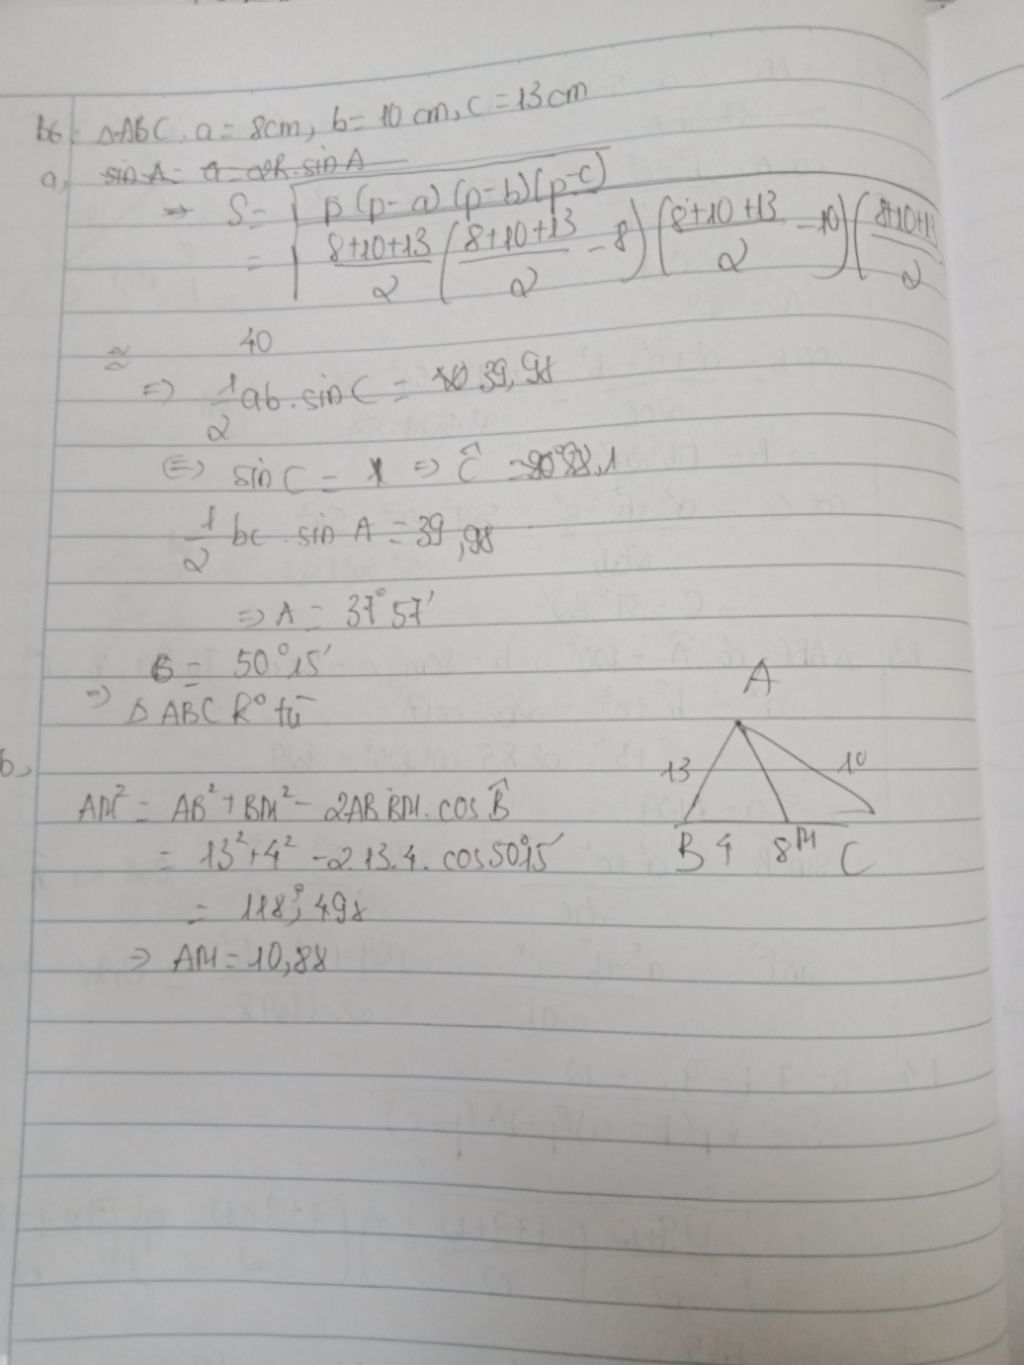 b6: ΔABC. a = 8cm, b = 10 cm, c = 13 cm
a, sin A = a = 2R. sin A
⇒ S = √p (p-a) (p-b) (p-c)
= √(8+10+13)/2 ((8+10+13)/2 - 8) ((8+10+13)/2 - 10) ((8+10+13)/2
≈ 40
⇒ 1/2 ab. sin C = 39,98
⇔ sin C = ⇒ Ĉ =
1/2 bc. sin A = 39,98
⇒ A = 37°57'
B = 50°15'
⇒ Δ ABC k° tù
b,
AM² = AB² + BM² - 2AB BM. cos B̂
= 13² + 4² - 2.13.4. cos 50°15'
= 118,498
⇒ AM = 10,88
A
13 10
B 4 8 M C